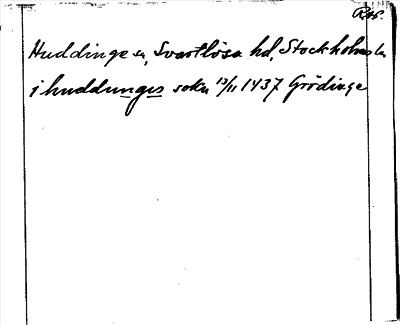 RAp.
Huddinge sn, Svartlösa hd, Stockholms län
i huddunges sokn 13/11 1437 Grödinge